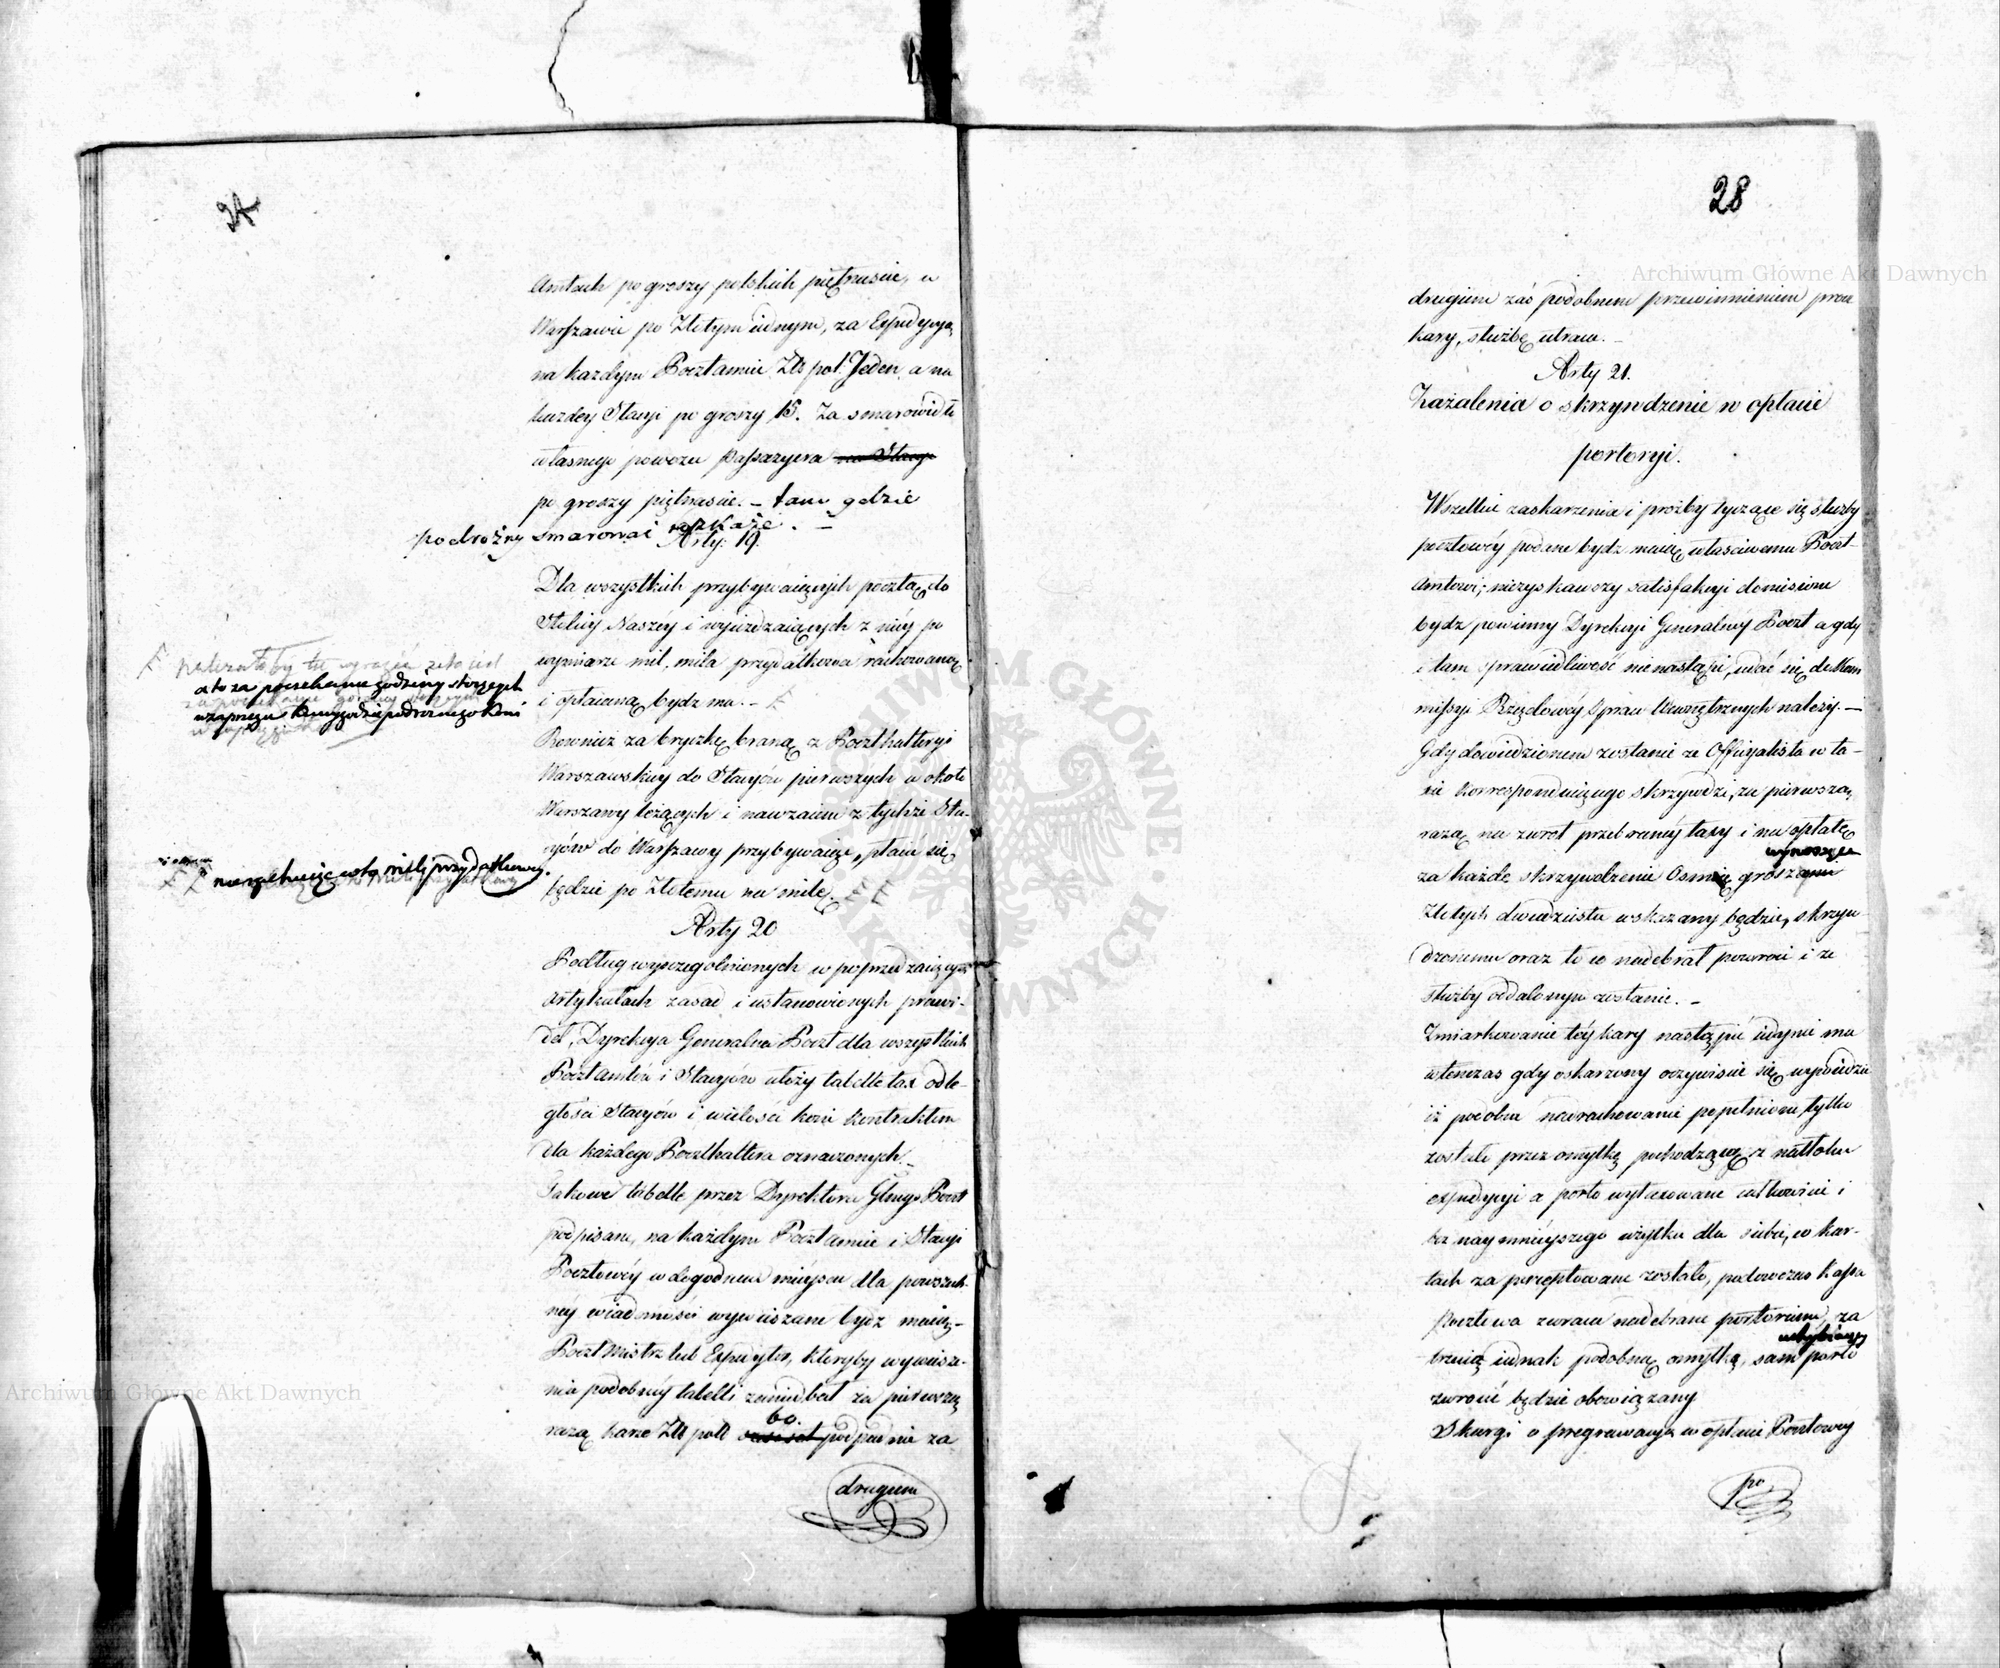 Amtach po groszy polskich piętnaście, w
Warszawie po Złotym iednym, za Expedycyą
na każdym Pocztamcie Zł pol: Jeden a na
każdey Stacyi po groszy 15. Za smarowidło
własnego powozu Passażyera na Stacyi
po groszy piętnaście. – tam gdzie
podróżny smarować każe. –
Arty: 19.
Dla wszystkich przybywaiących pocztą do
Stolicy Naszey i wyieżdżaiących z niéy po
wymiarze mil, mila przydatkowa rachowaną
i opłacaną bydz ma. –
należałoby tu wyrazić że to iest
a to za poczekanie godziny stoięcych
w zaprzęgu koni
Rownież za bryczkę braną z Poczthalteryi
Warszawskiey do Stacyów pierwszych w około
Warszawy leżących i nawzaiem z tychże Sta-
cyów do Warszawy przybywaiące, płacić się
będzie po Złotemu na milę.
nierachuiąc w to mili przydatkowey.
Arty 20
Podług wyszczegolnionych w poprzedzaiących
Artykułach zasad i ustanowionych prawi-
deł, Dyrekcya Generalna Poczt dla wszystkich
Pocztamtów i Stacyów ułoży tabelle tax odle-
głości Stacyów i wielości koni kontraktem
dla każdego Poczthaltera oznaczonych. –
Takowe tabelle przez Dyrektora Glnego Poczt
podpisane, na każdym Pocztamcie i Stacyi
Pocztowéy w dogodnem mieyscu dla powszech-
néy wiadomości wywieszane bydz maią. –
PoczMistrz lub Expedytor, któryby wywiesze-
nia podobnéy tabelli zaniedbał za pierwszą
razą karze Zł poll 60. podpadnie za
drugiem
28
drugiem zaś podobnem przewinnieniem prócz
kary, służbę utraca. –
Arty 21.
Zażalenia o skrzywdzenie w opłacie
portoryi.
Wszelkie zaskarżenia i prożby tyczące się służby
pocztowéy podane bydz maią właściwemu Poczt-
Amtowi; niezyskawszy satisfakcyi doniesione
bydz powinny Dyrekcyi Generalnéy Poczt a gdy
i tam sprawiedliwość nie nastąpi, udać się do Kom
missyi Rządowéy Spraw Wewnętrznych należy. –
Gdy dowiedzionem zostanie że Officyalista w ta-
xie korrespondenciącego skrzywdzi, za pierwszą
razą na zwrot przebranéy taxy i na opłatę
wynoszące
za każde skrzywdzenie Osmię groszom
Złotych dwadzieścia wskazany będzie, skrzyw-
dzonemu oraz to co nadebrał powróci i ze
służby oddalonym zostanie. –
Zmiarkowanie téy kary nastąpić iedynie ma
wtenczas gdy oskarżony oczywiście się wywiedzie
iż podobne narachowanie popełnione tylko
zostało przez omyłkę pochodzącą z natłoku
expedycyi a porto wytaxowane całkowicie i
bez naymnieyszego użytku dla siebie, w kar-
tach za perceptowane zostało, podówczas kassa
Pocztowa zwraca nadebrane portorium, za
uchybiaiący
trzecią iednak podobną omyłką, sam porto
zwrócić będzie obowiązany
Skargi o pregrawacyą w opłacie Pocztowey
po
Archiwum Główne Akt Dawnych
Archiwum Główne Akt Dawnych
ARCHIWUM GŁÓWNE AKT DAWNYCH